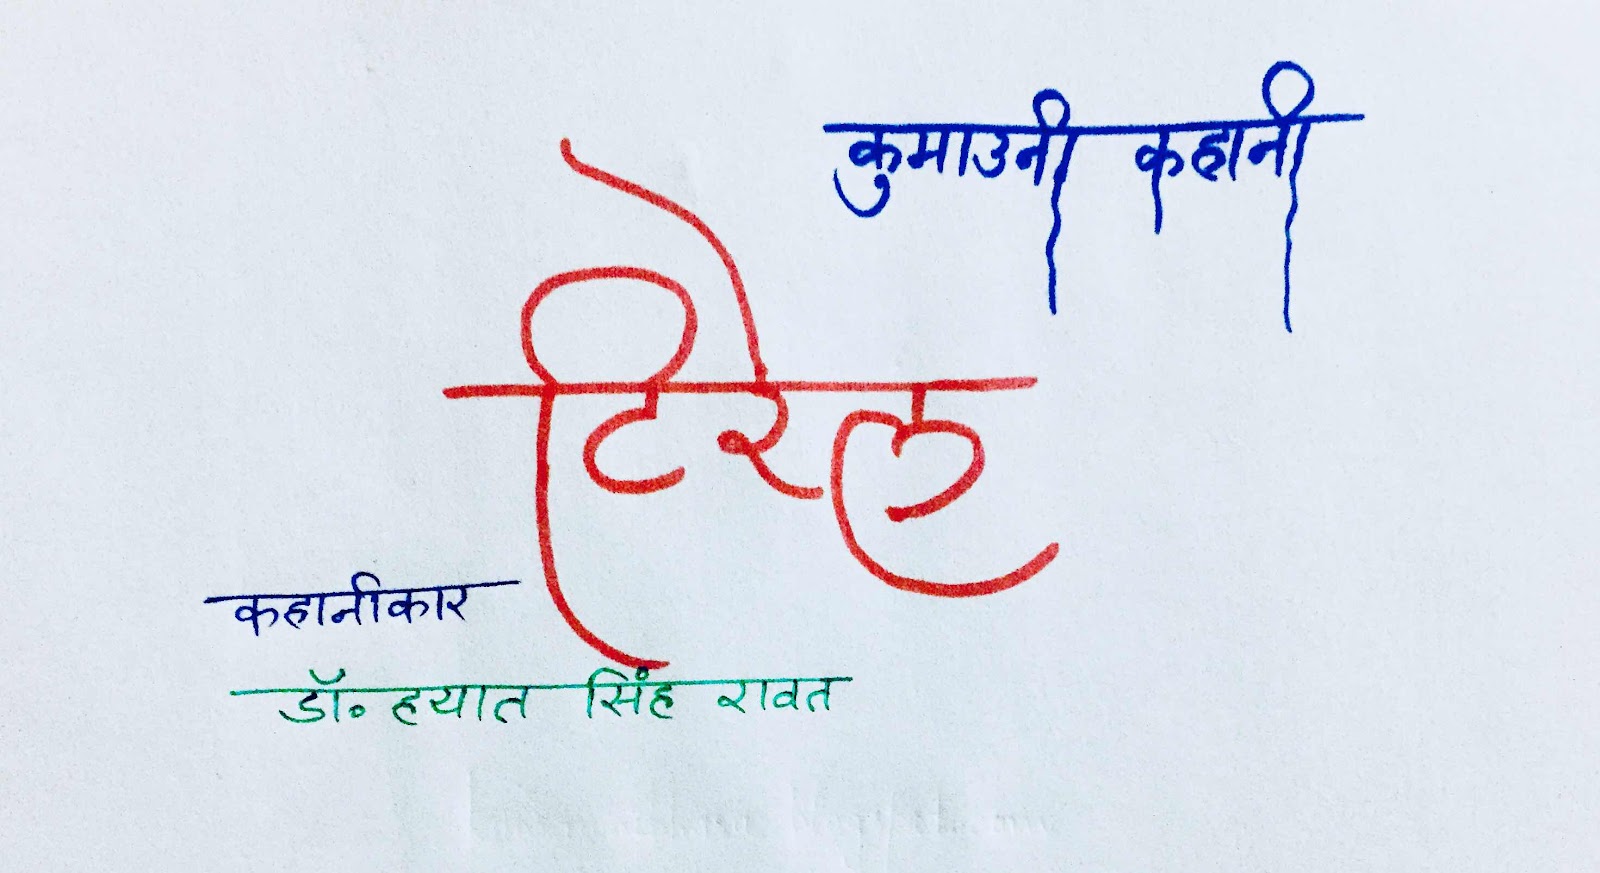 कुमाउनी कहानी
टिरेल
कहानीकार
डॉ॰ हयात सिंह रावत